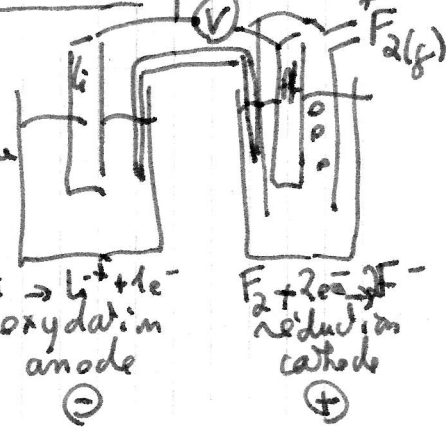 V
F₂(g)
Li
→ Li⁺ + 1e⁻
oxydation
anode
⊖
F₂ + 2e⁻ → 2F⁻
réduction
cathode
⊕